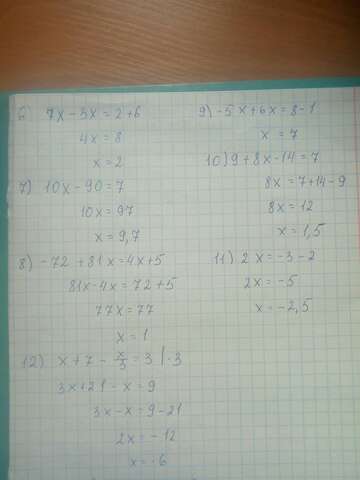 6) 7x - 3x = 2 + 6
4x = 8
x = 2
7) 10x - 90 = 7
10x = 97
x = 9,7
8) -72 + 81x = 4x + 5
81x - 4x = 72 + 5
77x = 77
x = 1
12) x + 7 - x/3 = 3 | ·3
3x + 21 - x = 9
3x - x = 9 - 21
2x = -12
x = -6
9) -5x + 6x = 8 - 1
x = 7
10) 9 + 8x - 14 = 7
8x = 7 + 14 - 9
8x = 12
x = 1,5
11) 2x = -3 - 2
2x = -5
x = -2,5